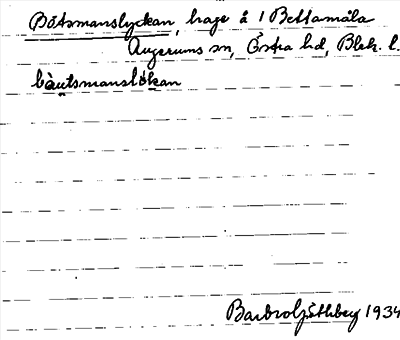 Båtsmanslyckan, hage å 1 Bettamåla
Augerums sn, Östra hd, Blek. l.
bàutsmanslökan
1934